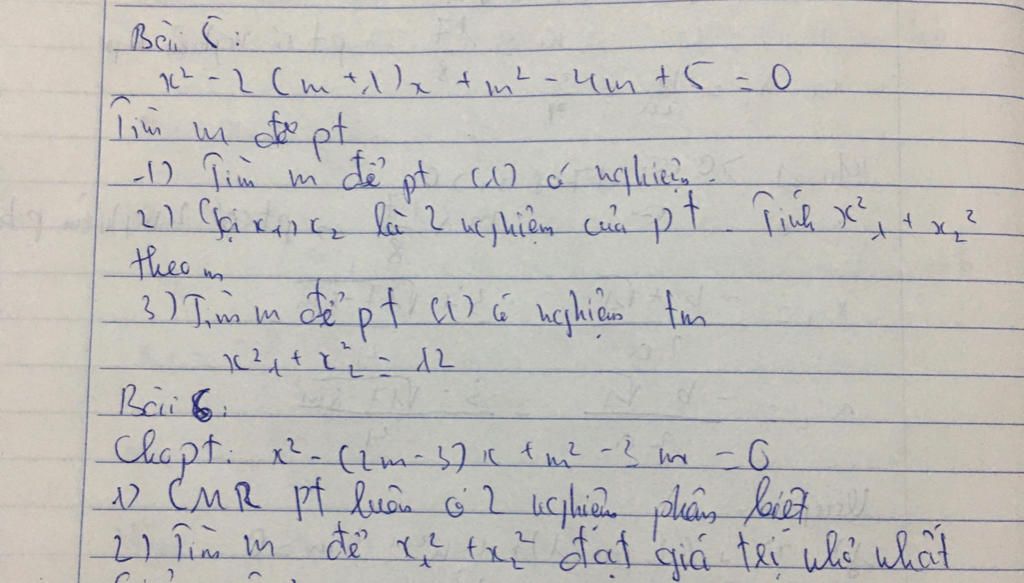 Bài 5:
x² - 2(m+1)x + m² - 4m + 5 = 0
Tìm m để pt
1) Tìm m để pt (1) có nghiệm.
2) Gọi x₁, x₂ là 2 nghiệm của pt. Tính x²₁ + x₂²
theo m
3) Tìm m để pt (1) có nghiệm tm
x²₁ + x²₂ = 12
Bài 6:
Cho pt: x² - (2m - 3)x + m² - 3m = 0
1) CMR pt luôn có 2 nghiệm phân biệt
2) Tìm m để x₁² + x₂² đạt giá trị nhỏ nhất